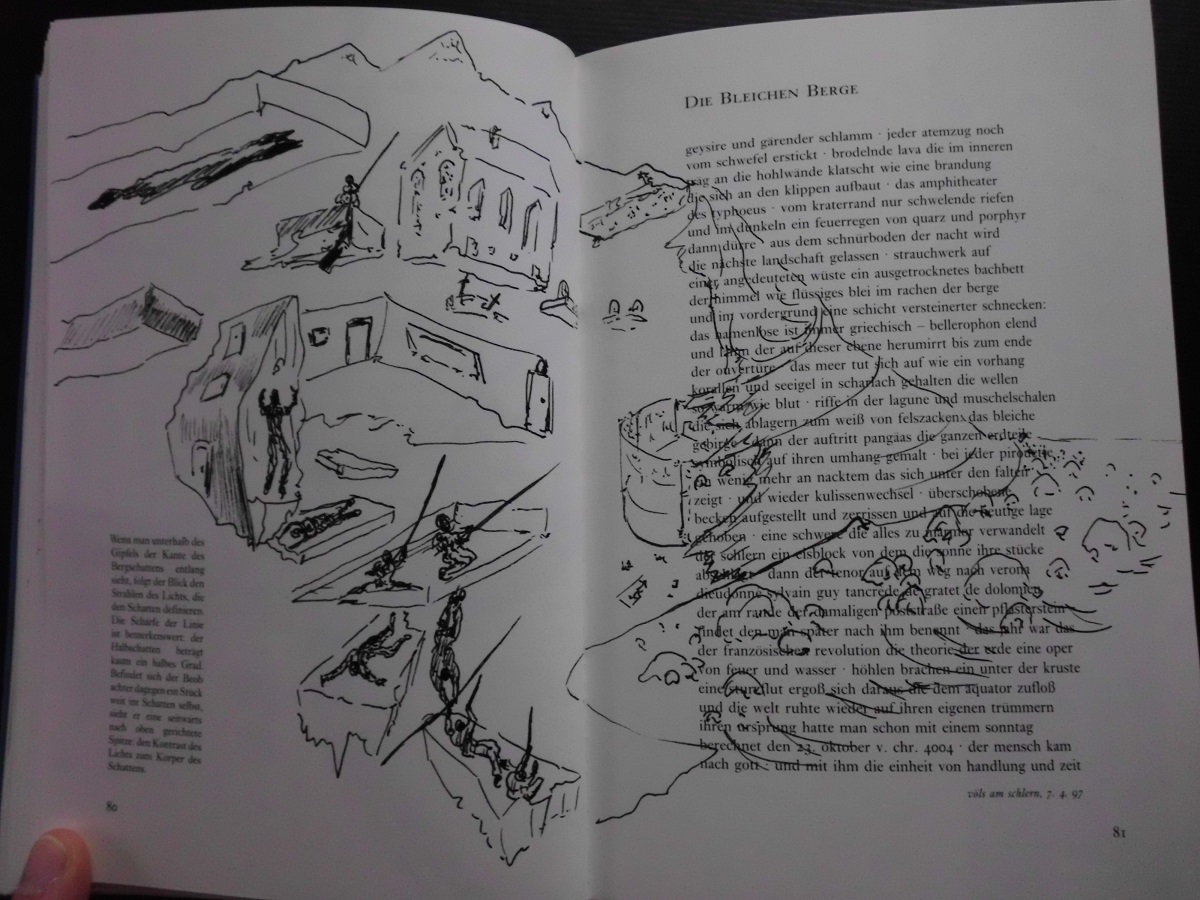 Wenn man unterhalb des
Gipfels der Kante des
Bergschattens entlang
sieht, folgt der Blick den
Strahlen des Lichts, die
den Schatten definieren.
Die Schärfe der Linie
ist bemerkenswert: der
Halbschatten beträgt
kaum ein halbes Grad.
Befindet sich der Beob
achter dagegen ein Stück
weit im Schatten selbst,
sieht er eine seitwärts
nach oben gerichtete
Spitze: den Kontrast des
Lichts zum Körper des
Schattens.
80
Die Bleichen Berge
geysire und gärender schlamm · jeder atemzug noch
vom schwefel erstickt · brodelnde lava die im inneren
träg an die hohlwände klatscht wie eine brandung
die sich an den klippen aufbaut · das amphitheater
des typhoeus · vom kraterrand nur schwelende riefen
und im dunkeln ein feuerregen von quarz und porphyr
dann dürre · aus dem schnürboden der nacht wird
die nächste landschaft gelassen · strauchwerk auf
einer angedeuteten wüste ein ausgetrocknetes bachbett
der himmel wie flüssiges blei im rachen der berge
und im vordergrund eine schicht versteinerter schnecken:
das namenlose ist immer griechisch – bellerophon elend
und lahm der auf dieser ebene herumirrt bis zum ende
der ouvertüre · das meer tut sich auf wie ein vorhang
korallen und seeigel in scharlach gehalten die wellen
so warm wie blut · riffe in der lagune und muschelschalen
die sich ablagern zum weiß von felszacken · das bleiche
gebirge · dann der auftritt pangäas die ganzen erdteile
symbolisch auf ihren umhang gemalt · bei jeder pirouette
ein wenig mehr an nacktem das sich unter den falten
zeigt · und wieder kulissenwechsel · überschobene
becken aufgestellt und zerrissen und auf die heutige lage
gehoben · eine schwere die alles zu marmor verwandelt
der schlern ein eisblock von dem die sonne ihre stücke
dann der tenor auf dem weg nach verona
dieudonne sylvain guy tancrède de gratet de dolomieu
der am rande der damaligen poststraße einen pflasterstein
findet den man später nach ihm benennt · das jahr war das
der französischen revolution die theorie der erde eine oper
von feuer und wasser · höhlen brachen ein unter der kruste
eine sturzflut ergoß sich daraus die dem äquator zufloß
und die welt ruhte wieder auf ihren eigenen trümmern
ihren ursprung hatte man schon mit einem sonntag
berechnet den 23. oktober v. chr. 4004 · der mensch kam
nach gott · und mit ihm die einheit von handlung und zeit
völs am schlern, 7. 4. 97
81